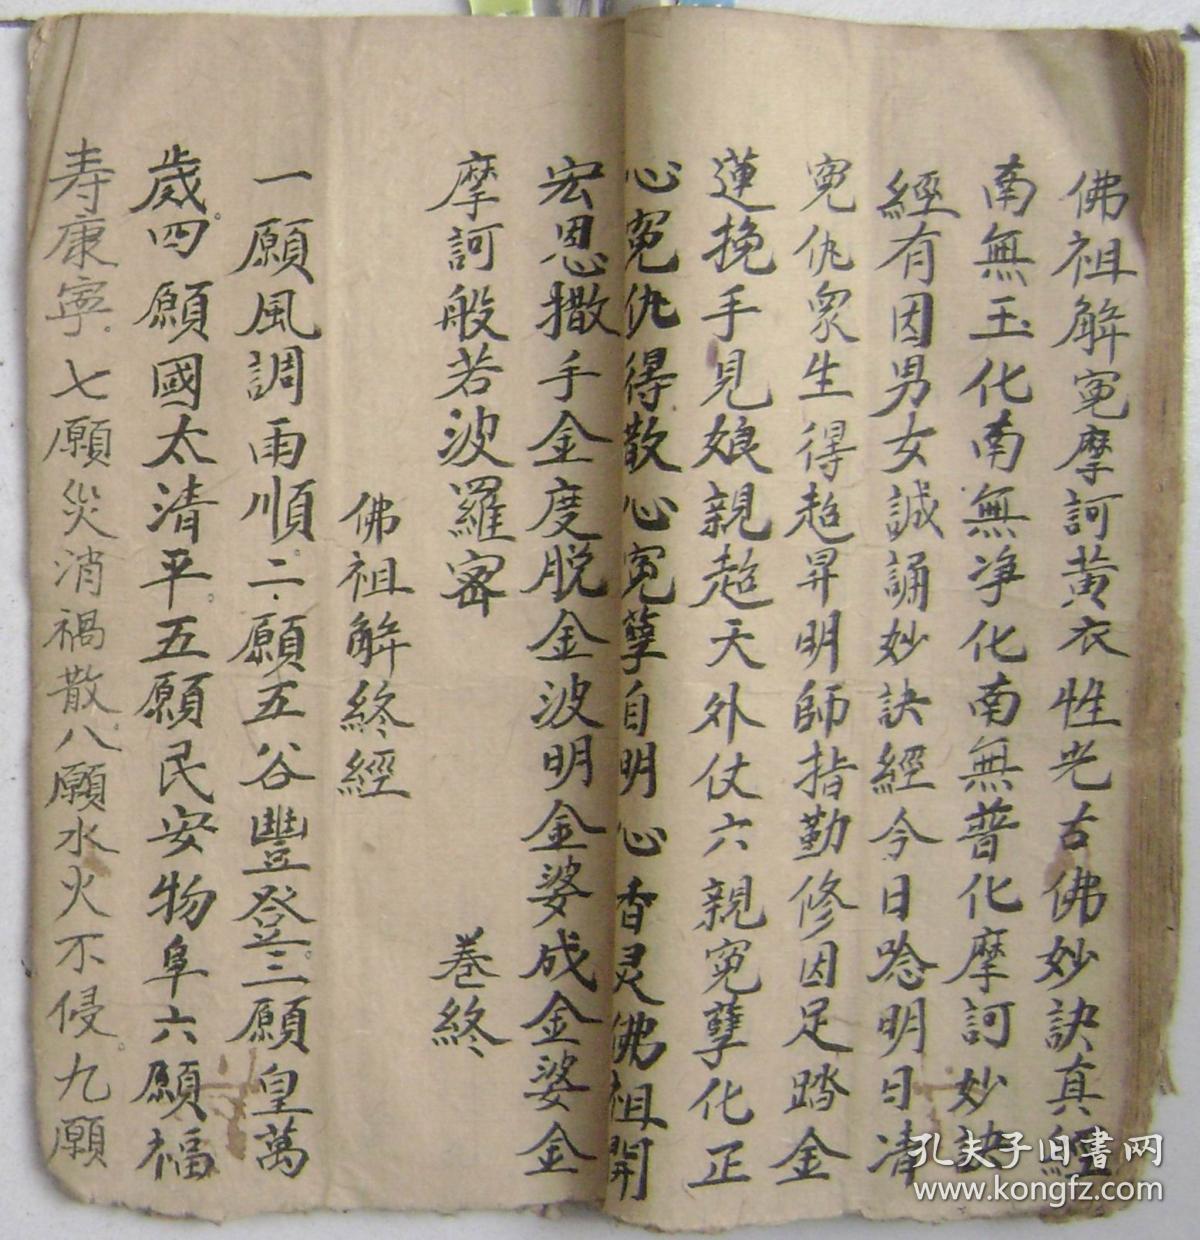 佛祖解寃摩訶黃衣性光古佛妙訣真經
南無玉化南無净化南無普化摩訶妙訣
經有因男女誠誦妙訣經今日唸明日清
寃仇眾生得超昇明師指勤修因足踏金
蓮挽手見娘親超天外仗六親寃孽化正
心寃仇得散心寃孽自明心香灵佛祖開
宏恩撒手金度脱金波明金婆成金婆金
摩訶般若波羅密 卷終
佛祖解終經
一願風調雨順。二願五谷豐登。三願皇萬
歲。四願國太清平。五願民安物阜六願福
寿康寧。七願災消禍散。八願水火不侵。九願
孔夫子旧书网
www.kongfz.com